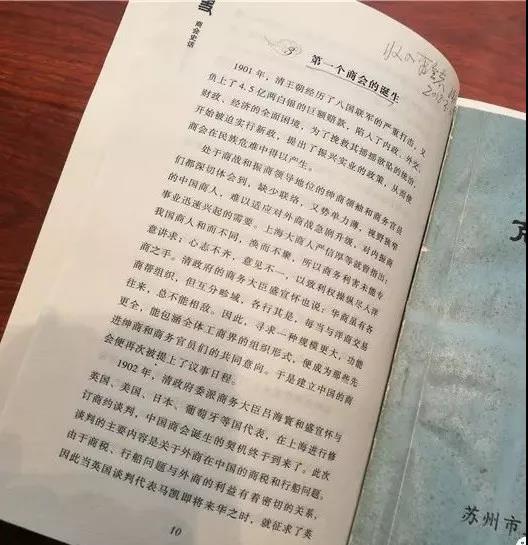 商会史话
第一个商会的诞生
1901年，清王朝经历了八国联军的严重打击，又
负上了4.5亿两白银的巨额赔款，陷入了内政、外交、
财政、经济的全面困境，为了挽救其摇摇欲坠的统治，
开始被迫实行新政，提出了振兴实业的政策，从而使
商会在民族危难中得以产生。
处于商战和振商领导地位的绅商领袖和商务官员
们都深切体会到，缺少联络，又势单力薄，视野狭窄
的中国商人，难以适应对外商战急剧升级，对内振商
事业迅速兴起的需要。上海大商人严信厚等就曾指出：
我国商人和而不同，涣而不聚，所以商务利害未能专
意讲求；心志不齐，意见不一，以致利权操纵尽人洋
商之手。清政府的商务大臣盛宣怀也说：华商虽有各
商帮组织，但互分畛域，各行其是，每当与洋商交易
往来，总不能相敌。因此，寻求一种规模更大，功能
更全，能包涵全体工商界的组织形式，便成为那些先
进绅商和商务官员们的共同意向。于是建立中国的商
会便再次被提上了议事日程。
1902年，清政府委派商务大臣吕海寰和盛宣怀与
英国、美国、日本、葡萄牙等国代表，在上海进行修
订商约谈判，中国商会诞生的契机终于到来了。此次
谈判的主要内容是关于外商在中国的商税和行船问题。
由于商税、行船问题与外商的利益有着密切的关系，
因此当英国谈判代表马凯即将来华之时，就征求了英
10
苏州市